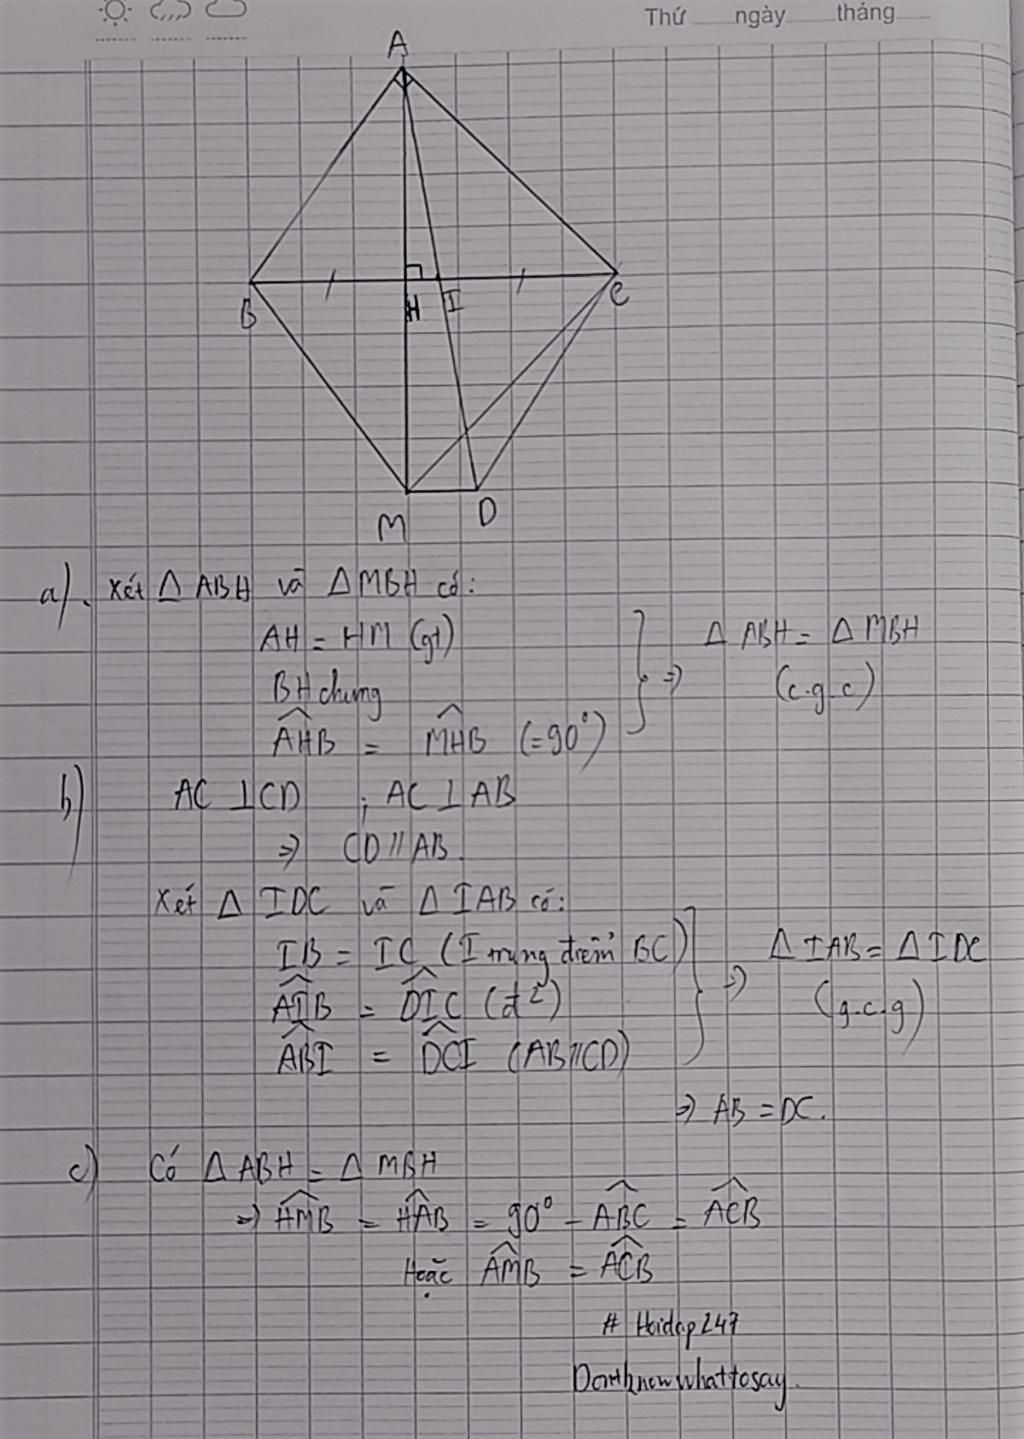 Thứ ngày tháng
A
B H I C
M D
a). Xét Δ ABH và Δ MBH có:
AH = HM (gt)
BH chung
AHB = MHB (=90°)
⇒ Δ ABH = Δ MBH
(c.g.c)
b) AC ⊥ CD ; AC ⊥ AB
⇒ CD // AB.
Xét Δ IDC và Δ IAB có:
IB = IC (I trung điểm BC)
AIB = DIC (đ²)
ABI = DCI (AB//CD)
⇒ Δ IAB = Δ IDC
(g.c.g)
⇒ AB = DC.
c) Có Δ ABH = Δ MBH
⇒ HMB = HAB = 90° - ABC = ACB
Hoặc AMB = ACB
# Hoidap247
Dontknowwhattosay.